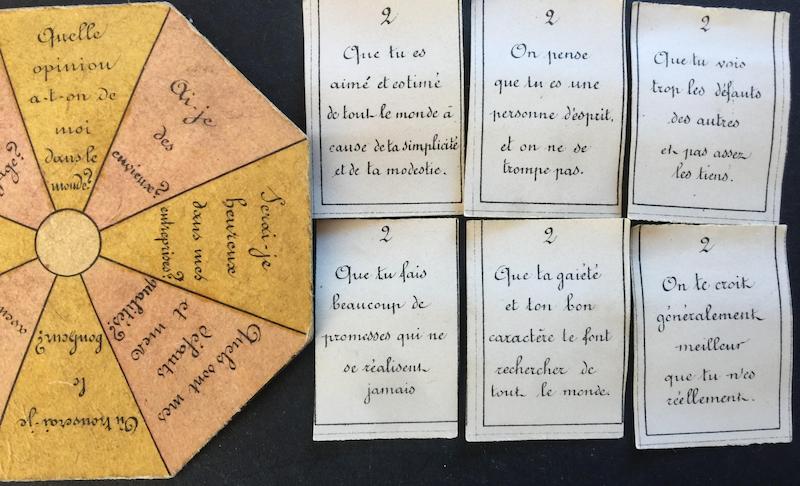 Quelle
opinion
a-t-on de
moi
dans le
monde?
Ai-je
des
envieux?
Serai-je
heureux
dans mes
entreprises?
Quels sont mes
défauts
et mes
qualités?
Où trouverai-je
le
bonheur?
2
Que tu es
aimé et estimé
de tout le monde à
cause de ta simplicité
et de ta modestie.
2
On pense
que tu es une
personne d'esprit,
et on ne se
trompe pas.
2
Que tu vois
trop les défauts
des autres
et pas assez
les tiens.
2
Que tu fais
beaucoup de
promesses qui ne
se réalisent
jamais
2
Que ta gaiété
et ton bon
caractère te font
rechercher de
tout le monde.
2
On te croit
généralement
meilleur
que tu n'es
réellement.